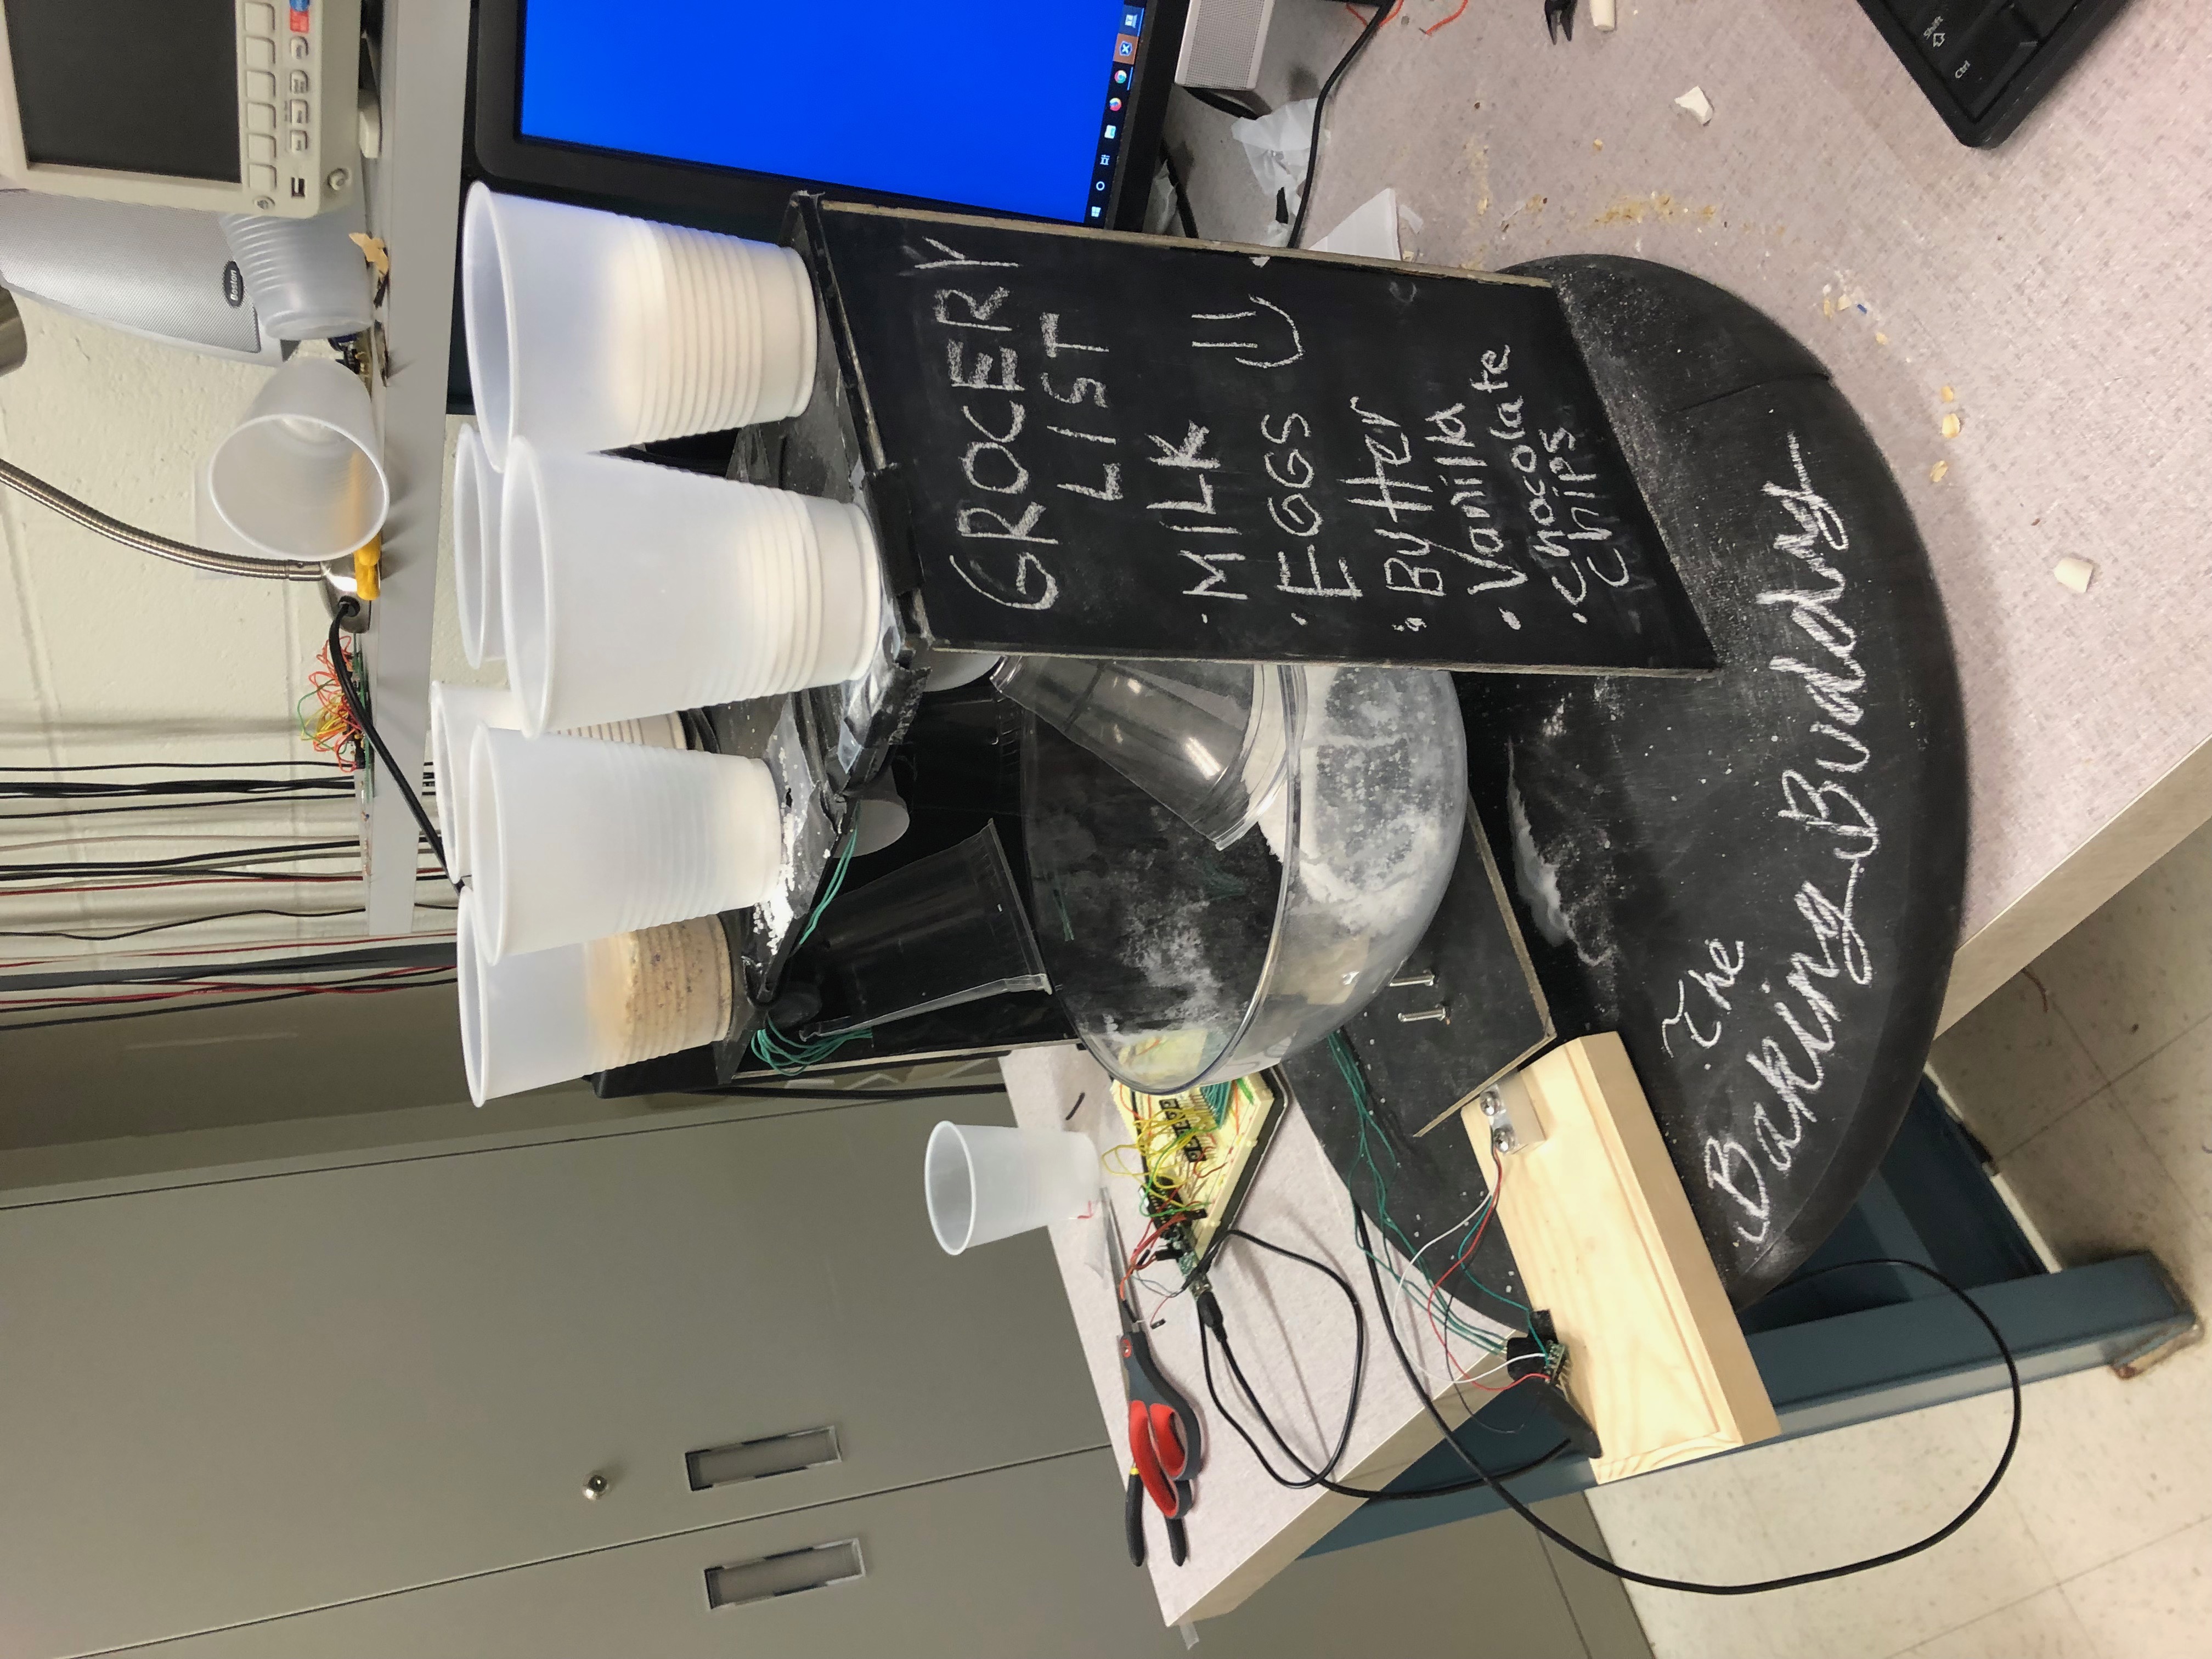 Boston
GROCERY
LIST
· MILK
· EGGS
· Butter
· Vanilla
· chocolate
chips
The
Baking Buddy
Shift
Ctrl